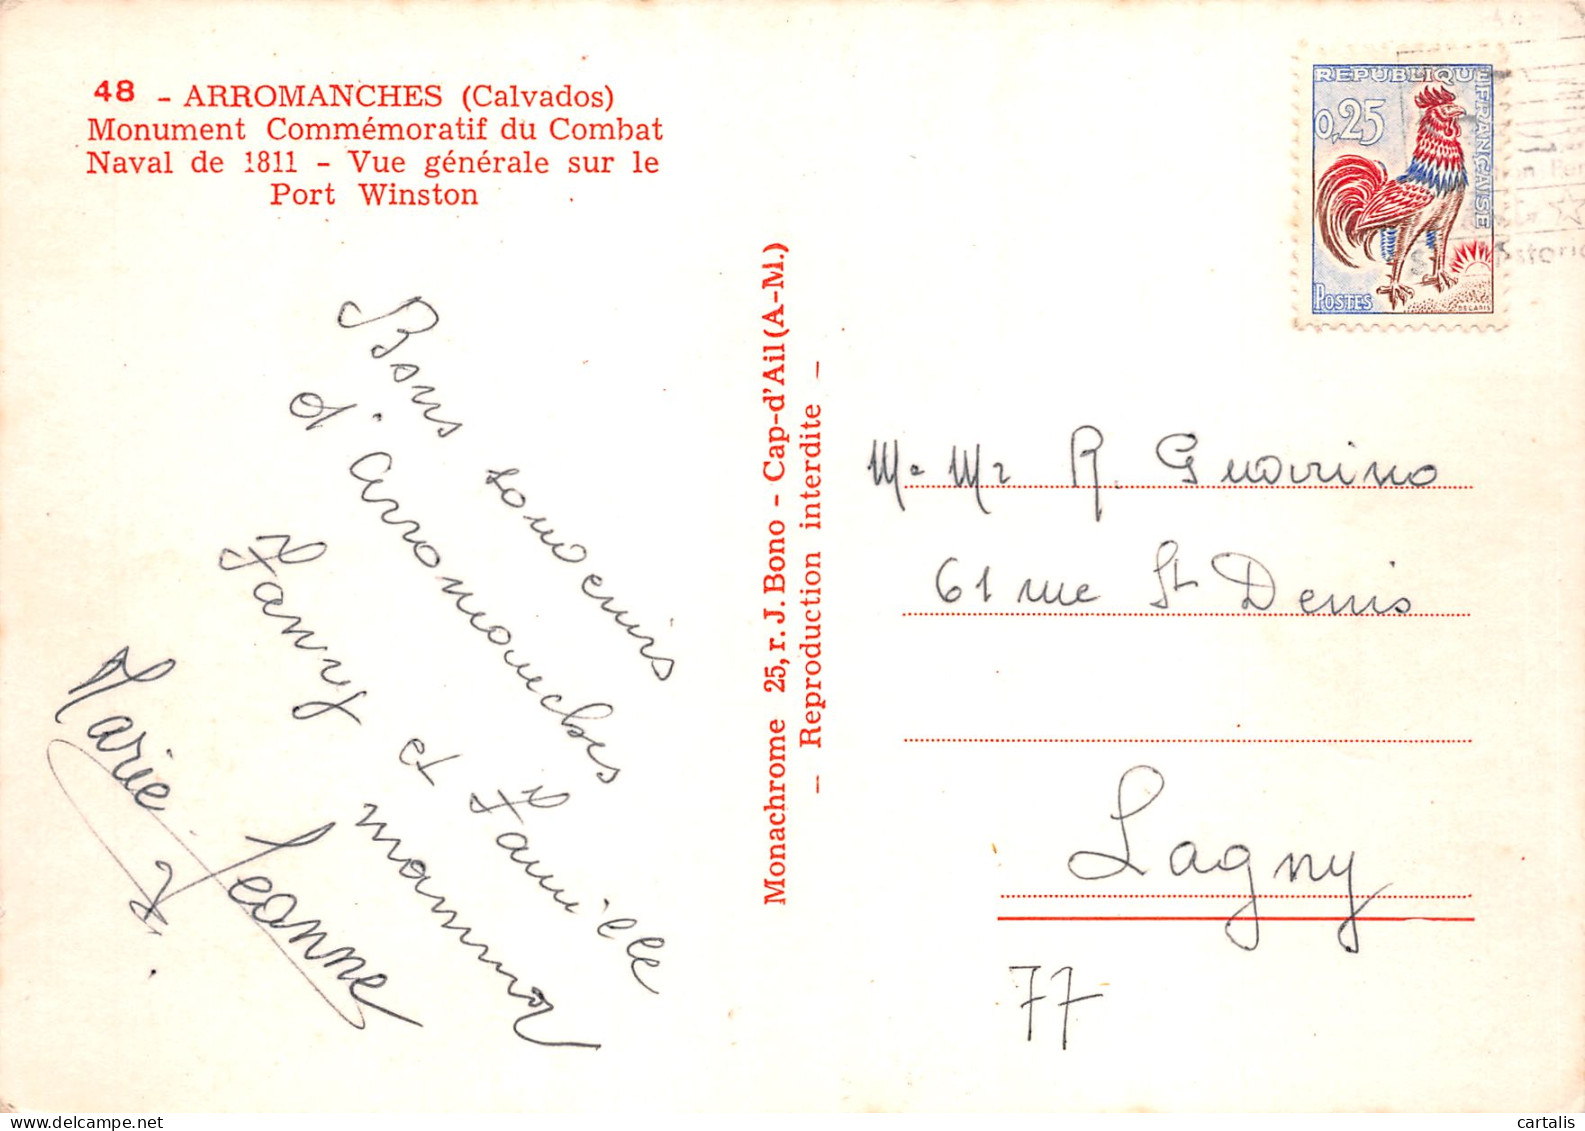 48 - ARROMANCHES (Calvados)
Monument Commémoratif du Combat
Naval de 1811 - Vue générale sur le
Port Winston
Bons souvenirs
d'arromanches
Fanny et Famille
maman
Marie Jeanne
Monachrome 25, r. J. Bono - Cap-d'Ail (A-M.)
- Reproduction interdite -
REPUBLIQUE FRANÇAISE
0,25
POSTES
DECARIS
R. Guarino
61 rue St Denis
Lagny
77
cartalis